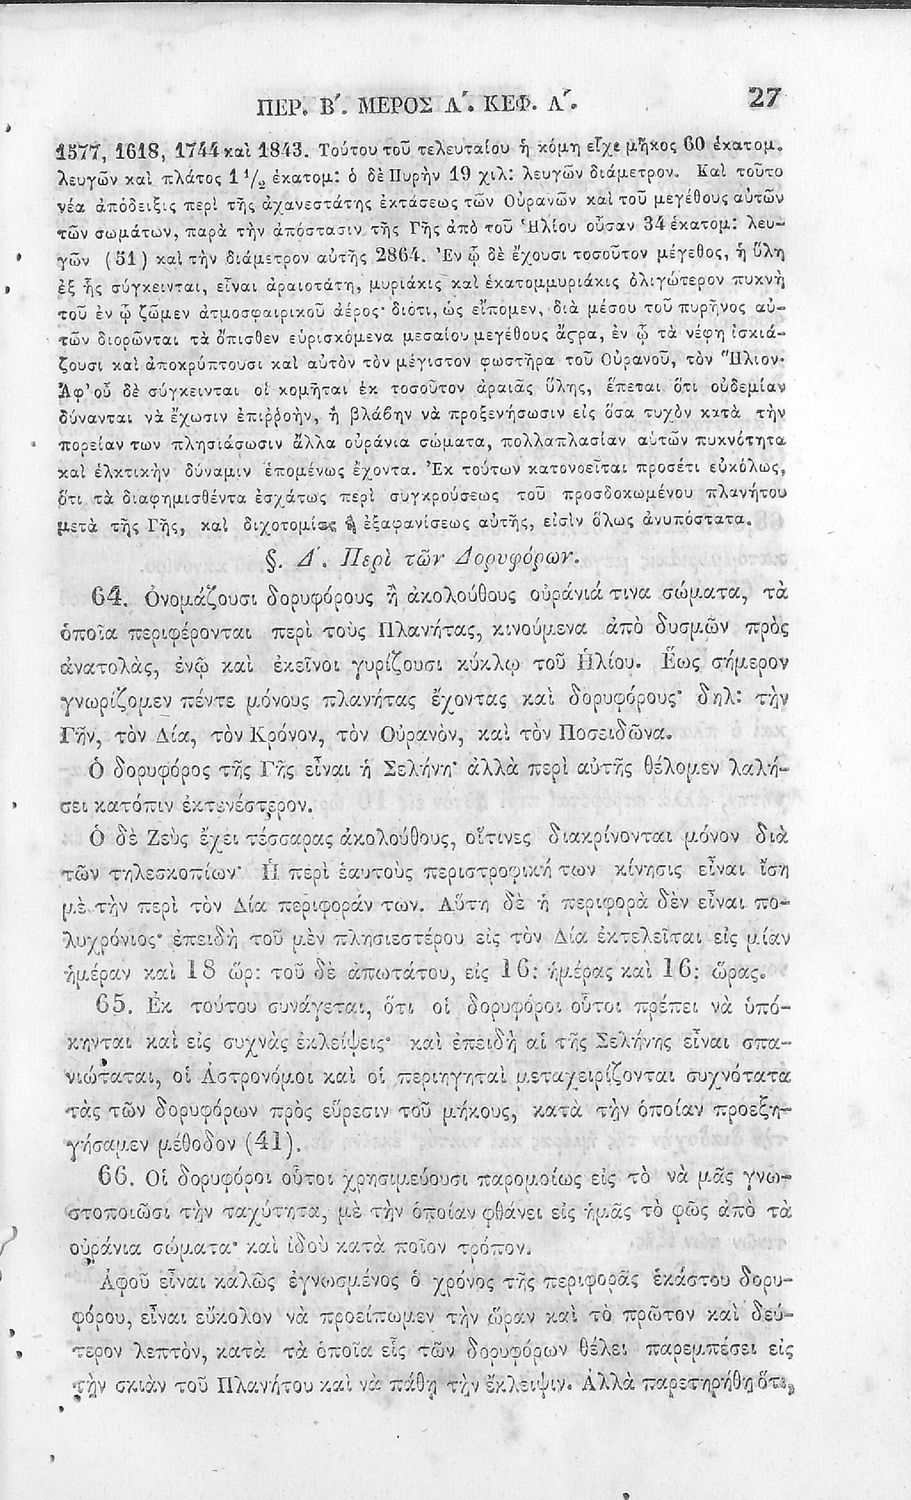 ΠΕΡ. Β΄. ΜΕΡΟΣ Α΄. ΚΕΦ. Α΄. 27
1577, 1618, 1744 καὶ 1843. Τούτου τοῦ τελευταίου ἡ κόμη εἶχε μῆκος 60 ἑκατομ.
λευγῶν καὶ πλάτος 1 1/2 ἑκατομ: ὁ δὲ Πυρὴν 19 χιλ: λευγῶν διάμετρον. Καὶ τοῦτο
νέα ἀπόδειξις περὶ τῆς ἀχανεστάτης ἐκτάσεως τῶν Οὐρανῶν καὶ τοῦ μεγέθους αὐτῶν
τῶν σωμάτων, παρὰ τὴν ἀπόστασιν τῆς Γῆς ἀπὸ τοῦ Ἡλίου οὖσαν 34 ἑκατομ: λευ-
γῶν (51) καὶ τὴν διάμετρον αὐτῆς 2864. Ἐν ᾧ δὲ ἔχουσι τοσοῦτον μέγεθος, ἡ ὕλη
ἐξ ἧς σύγκεινται, εἶναι ἀραιοτάτη, μυριάκις καὶ ἑκατομμυριάκις ὀλιγώτερον πυκνὴ
τοῦ ἐν ᾧ ζῶμεν ἀτμοσφαιρικοῦ ἀέρος· διότι, ὡς εἴπομεν, διὰ μέσου τοῦ πυρῆνος αὐ-
τῶν διορῶνται τὰ ὄπισθεν εὑρισκόμενα μεσαίου μεγέθους ἄστρα, ἐν ᾧ τὰ νέφη ἰσκιά-
ζουσι καὶ ἀποκρύπτουσι καὶ αὐτὸν τὸν μέγιστον φωστῆρα τοῦ Οὐρανοῦ, τὸν Ἥλιον·
Ἀφ' οὗ δὲ σύγκεινται οἱ κομῆται ἐκ τοσοῦτον ἀραιᾶς ὕλης, ἕπεται ὅτι οὐδεμίαν
δύνανται νὰ ἔχωσιν ἐπιῤῥοὴν, ἢ βλάβην νὰ προξενήσωσιν εἰς ὅσα τυχὸν κατὰ τὴν
πορείαν των πλησιάσωσιν ἄλλα οὐράνια σώματα, πολλαπλασίαν αὐτῶν πυκνότητα
καὶ ἑλκτικὴν δύναμιν ἑπομένως ἔχοντα. Ἐκ τούτων κατονοεῖται προσέτι εὐκόλως,
ὅτι τὰ διαφημισθέντα ἐσχάτως περὶ συγκρούσεως τοῦ προσδοκωμένου πλανήτου
μετὰ τῆς Γῆς, καὶ διχοτομίας ἢ ἐξαφανίσεως αὐτῆς, εἰσὶν ὅλως ἀνυπόστατα.
§. Δ΄. Περὶ τῶν Δορυφόρων.
64. Ὀνομάζουσι δορυφόρους ἢ ἀκολούθους οὐράνιά τινα σώματα, τὰ
ὁποῖα περιφέρονται περὶ τοὺς Πλανήτας, κινούμενα ἀπὸ δυσμῶν πρὸς
ἀνατολὰς, ἐνῷ καὶ ἐκεῖνοι γυρίζουσι κύκλῳ τοῦ Ἡλίου. Ἕως σήμερον
γνωρίζομεν πέντε μόνους πλανήτας ἔχοντας καὶ δορυφόρους· δηλ: τὴν
Γῆν, τὸν Δία, τὸν Κρόνον, τὸν Οὐρανὸν, καὶ τὸν Ποσειδῶνα.
Ὁ δορυφόρος τῆς Γῆς εἶναι ἡ Σελήνη· ἀλλὰ περὶ αὐτῆς θέλομεν λαλή-
σει κατόπιν ἐκτενέστερον.
Ὁ δὲ Ζεὺς ἔχει τέσσαρας ἀκολούθους, οἵτινες διακρίνονται μόνον διὰ
τῶν τηλεσκοπίων· Ἡ περὶ ἑαυτοὺς περιστροφική των κίνησις εἶναι ἴση
μὲ τὴν περὶ τὸν Δία περιφοράν των. Αὕτη δὲ ἡ περιφορὰ δὲν εἶναι πο-
λυχρόνιος· ἐπειδὴ τοῦ μὲν πλησιεστέρου εἰς τὸν Δία ἐκτελεῖται εἰς μίαν
ἡμέραν καὶ 18 ὥρ: τοῦ δὲ ἀπωτάτου, εἰς 16: ἡμέρας καὶ 16: ὥρας.
65. Ἐκ τούτου συνάγεται, ὅτι οἱ δορυφόροι οὗτοι πρέπει νὰ ὑπό-
κηνται καὶ εἰς συχνὰς ἐκλείψεις· καὶ ἐπειδὴ αἱ τῆς Σελήνης εἶναι σπα-
νιώταται, οἱ Ἀστρονόμοι καὶ οἱ περιηγηταὶ μεταχειρίζονται συχνότατα
τὰς τῶν δορυφόρων πρὸς εὕρεσιν τοῦ μήκους, κατὰ τὴν ὁποίαν προεξη-
γήσαμεν μέθοδον (41).
66. Οἱ δορυφόροι οὗτοι χρησιμεύουσι παρομοίως εἰς τὸ νὰ μᾶς γνω-
στοποιῶσι τὴν ταχύτητα, μὲ τὴν ὁποίαν φθάνει εἰς ἡμᾶς τὸ φῶς ἀπὸ τὰ
οὐράνια σώματα· καὶ ἰδοὺ κατὰ ποῖον τρόπον.
Ἀφοῦ εἶναι καλῶς ἐγνωσμένος ὁ χρόνος τῆς περιφορᾶς ἑκάστου δορυ-
φόρου, εἶναι εὔκολον νὰ προείπωμεν τὴν ὥραν καὶ τὸ πρῶτον καὶ δεύ-
τερον λεπτὸν, κατὰ τὰ ὁποῖα εἷς τῶν δορυφόρων θέλει παρεμπέσει εἰς
τὴν σκιὰν τοῦ Πλανήτου καὶ νὰ πάθῃ τὴν ἔκλειψιν. Ἀλλὰ παρετηρήθη ὅτι,